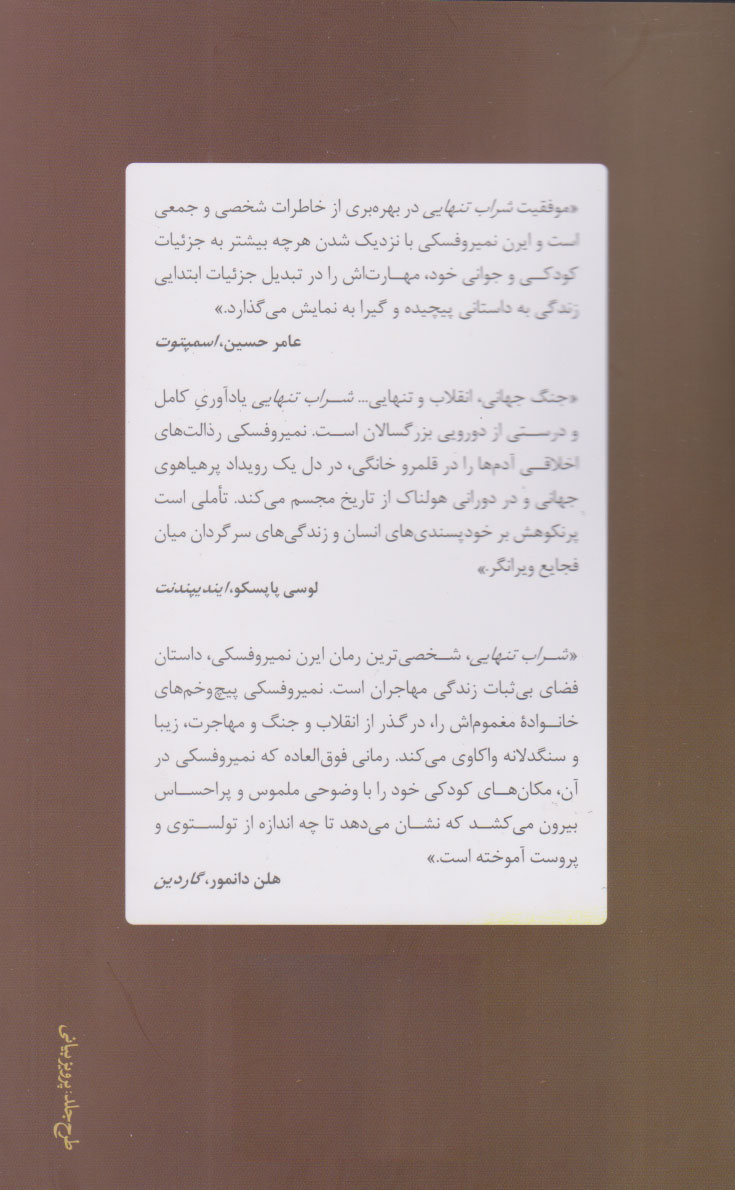 «موفقیت شراب تنهایی در بهره‌بری از خاطرات شخصی و جمعی
است و ایرن نمیروفسکی با نزدیک شدن هرچه بیشتر به جزئیات
کودکی و جوانی خود، مهارت‌اش را در تبدیل جزئیات ابتدایی
زندگی به داستانی پیچیده و گیرا به نمایش می‌گذارد.»
عامر حسین، اسمپتوت
«جنگ جهانی، انقلاب و تنهایی... شراب تنهایی یادآوریِ کامل
و درستی از دورویی بزرگسالان است. نمیروفسکی رذالت‌های
اخلاقی آدم‌ها را در قلمرو خانگی، در دل یک رویداد پرهیاهوی
جهانی و در دورانی هولناک از تاریخ مجسم می‌کند. تأملی است
پرنکوهش بر خودپسندی‌های انسان و زندگی‌های سرگردان میان
فجایع ویرانگر.»
لوسی پاپسکو، ایندیپندنت
«شراب تنهایی، شخصی‌ترین رمان ایرن نمیروفسکی، داستان
فضای بی‌ثبات زندگی مهاجران است. نمیروفسکی پیچ‌وخم‌های
خانوادهٔ مغموم‌اش را، در گذر از انقلاب و جنگ و مهاجرت، زیبا
و سنگدلانه واکاوی می‌کند. رمانی فوق‌العاده که نمیروفسکی در
آن، مکان‌های کودکی خود را با وضوحی ملموس و پراحساس
بیرون می‌کشد که نشان می‌دهد تا چه اندازه از تولستوی و
پروست آموخته است.»
هلن دانمور، گاردین
طرح جلد: پرویز بیانی